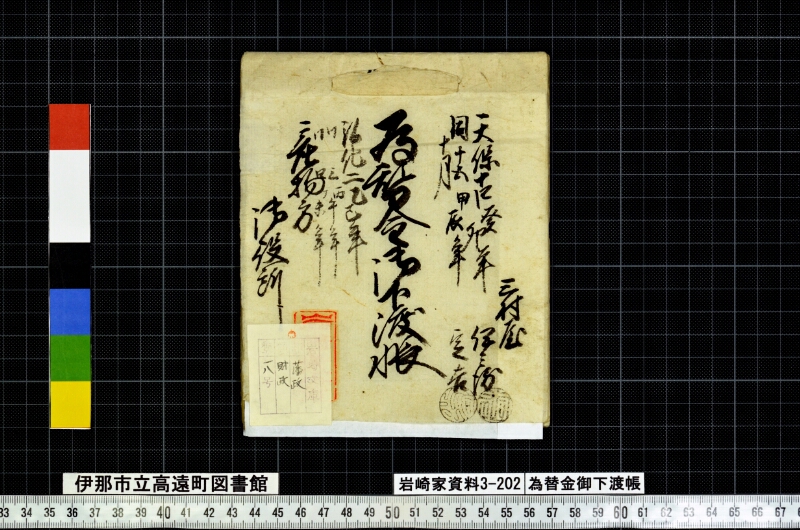 天保十四癸卯年
同十五甲辰年
十月
三村屋
伊三汾
定吉
為替金御下渡帳
弘化二乙巳年
同三丙午年
同四丁未年
産物方
御役所
藩政
財政
一八号
伊那市立高遠町図書館
岩崎家資料3-202
為替金御下渡帳
33 34 35 36 37 38 39 40 41 42 43 44 45 46 47 48 49 50 51 52 53 54 55 56 57 58 59 60 61 62 63 64 65 66 67